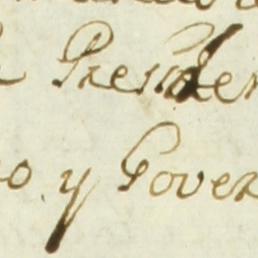 Presiden
o y Gover